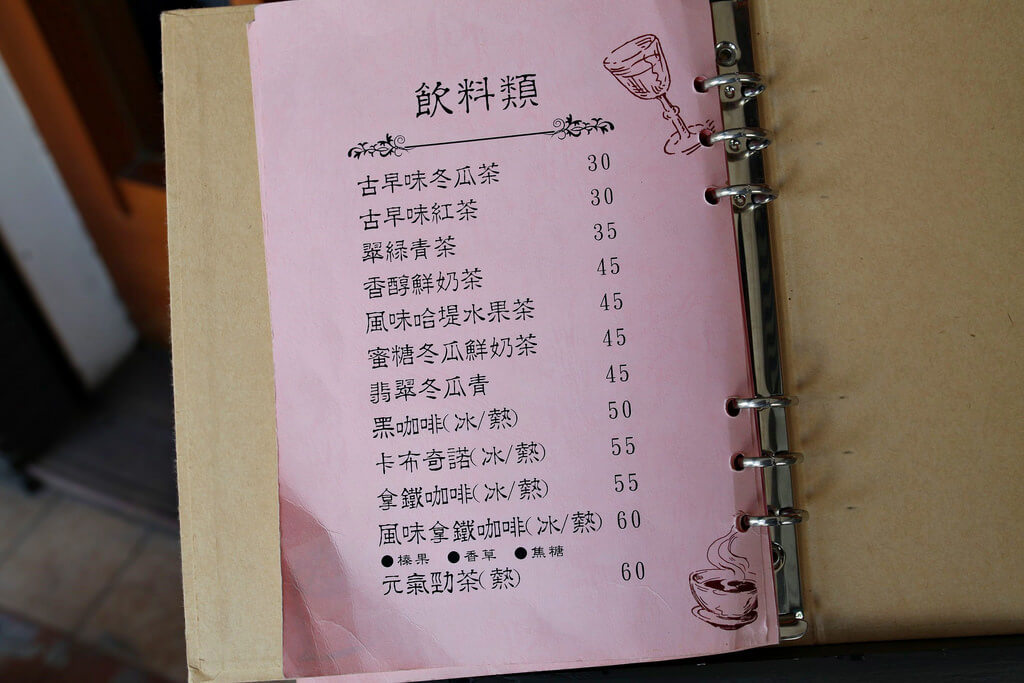 飲料類
古早味冬瓜茶 30
古早味紅茶 30
翠綠青茶 35
香醇鮮奶茶 45
風味哈堤水果茶 45
蜜糖冬瓜鮮奶茶 45
翡翠冬瓜青 45
黑咖啡(冰/熱) 50
卡布奇諾(冰/熱) 55
拿鐵咖啡(冰/熱) 55
風味拿鐵咖啡(冰/熱) 60
●榛果 ●香草 ●焦糖
元氣勁茶(熱) 60